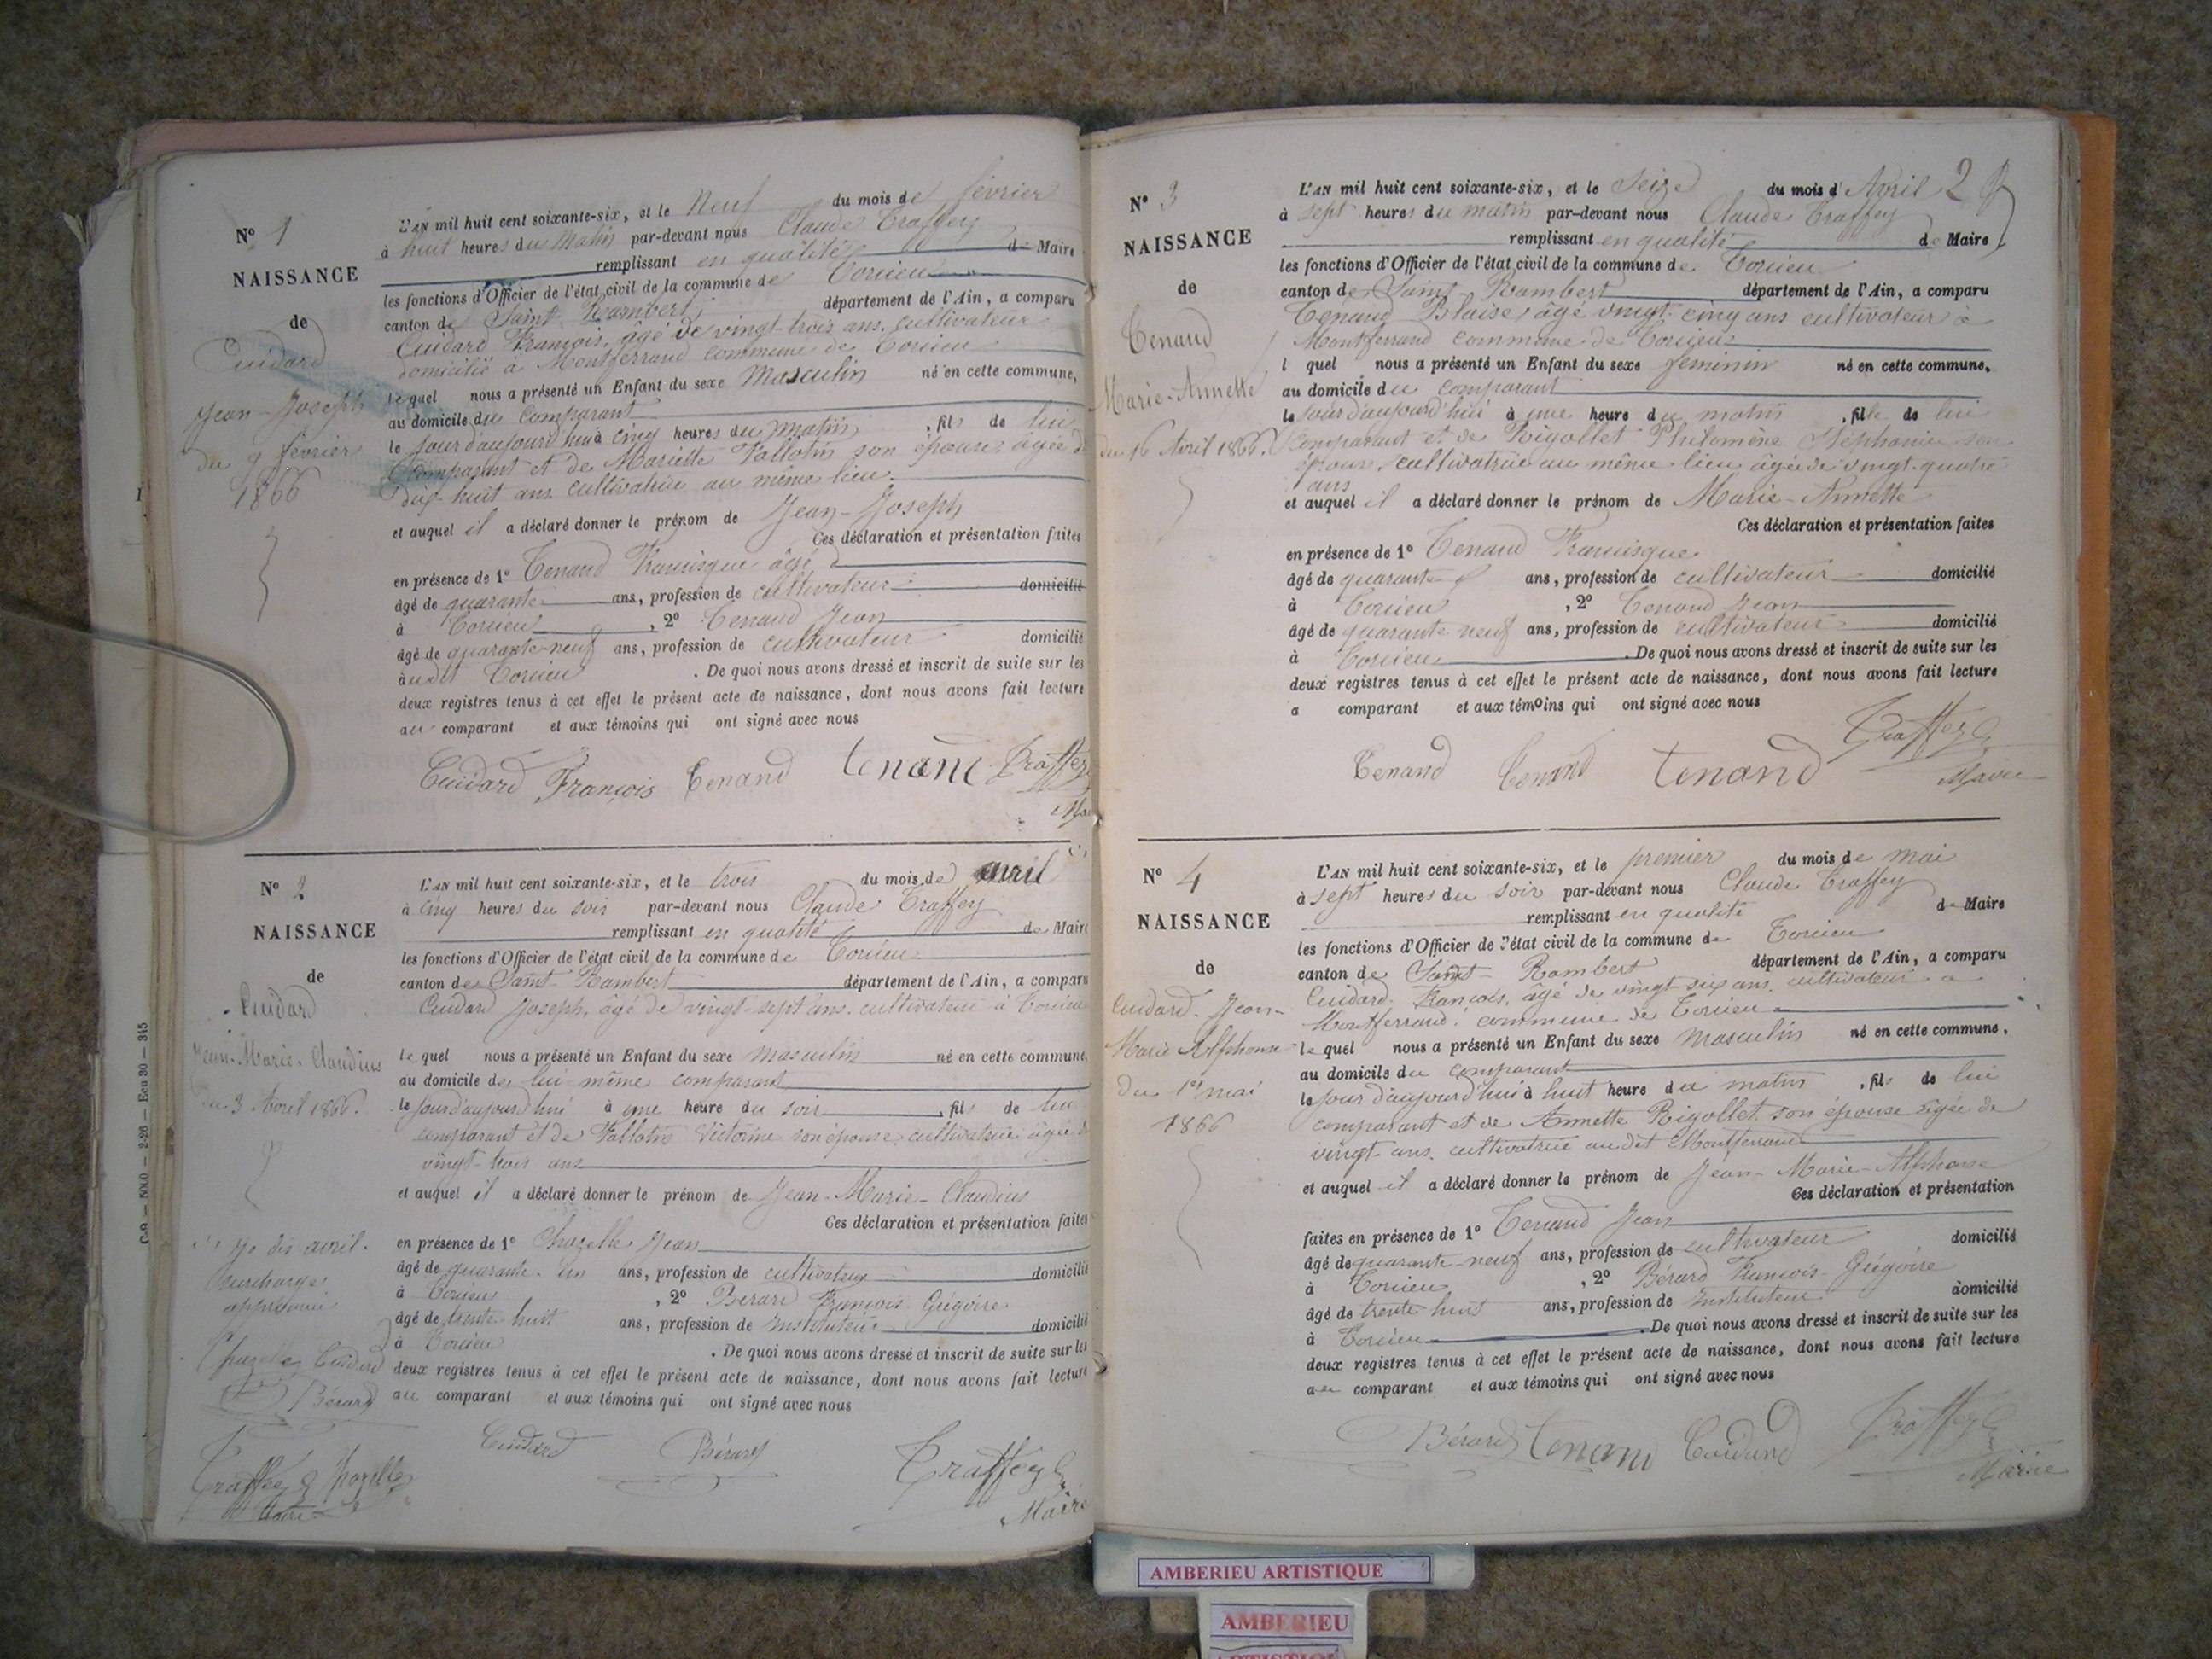 N° 1
NAISSANCE
de
Cuidard
Jean-Joseph
du 9 février
1866
L'AN mil huit cent soixante-six, et le Neuf du mois de février
à huit heures du Matin par-devant nous Claude Traffey
remplissant en qualité de Maire
les fonctions d'Officier de l'état civil de la commune de Torcieu
canton de Saint Rambert département de l'Ain, a comparu
Cuidard François, âgé de vingt-trois ans, cultivateur
domicilié à Montferrand commune de Torcieu
lequel nous a présenté un Enfant du sexe Masculin né en cette commune,
au domicile du Comparant
le jour d'aujourd'hui à cinq heures du matin, fils de lui
Comparant et de Mariette Vallotin son épouse, âgée de
dix-huit ans cultivatrice au même lieu.
et auquel il a déclaré donner le prénom de Jean-Joseph
Ces déclaration et présentation faites
en présence de 1° Tenand Francisque âgé d
âgé de quarante ans, profession de cultivateur domicilié
à Torcieu, 2° Tenand Jean
âgé de quarante-neuf ans, profession de cultivateur domicilié
audit Torcieu. De quoi nous avons dressé et inscrit de suite sur les
deux registres tenus à cet effet le présent acte de naissance, dont nous avons fait lecture
au comparant et aux témoins qui ont signé avec nous
Cuidard François Tenand tenand Traffey
N° 2
NAISSANCE
de
Cuidard
Jean-Marie-Claudius
du 3 Avril 1866.
avril.
surcharge
approuvée
Chazelle Cuidard
Bérard
Traffey Chozelle
Maire
L'AN mil huit cent soixante-six, et le trois du mois de avril
à cinq heures du soir par-devant nous Claude Traffey
remplissant en qualité de Maire
les fonctions d'Officier de l'état civil de la commune de Torcieu
canton de Saint Rambert département de l'Ain, a comparu
Cuidard Joseph, âgé de vingt-sept ans, cultivateur à Torcieu
lequel nous a présenté un Enfant du sexe masculin né en cette commune,
au domicile de lui-même comparant
le jour d'aujourd'hui à une heure du soir, fils de lui
comparant et de Vallotin Victorine son épouse, cultivatrice âgée de
vingt-trois ans
et auquel il a déclaré donner le prénom de Jean-Marie-Claudius
Ces déclaration et présentation faites
en présence de 1° Chazelle Jean
âgé de quarante-un ans, profession de cultivateur domicilié
à Torcieu, 2° Bérard François Grégoire
âgé de trente-huit ans, profession de Instituteur domicilié
à Torcieu. De quoi nous avons dressé et inscrit de suite sur les
deux registres tenus à cet effet le présent acte de naissance, dont nous avons fait lecture
au comparant et aux témoins qui ont signé avec nous
Cuidard Bérard Traffey
Maire
C-9 — 5000 — 2-26 — Ecu 30 — 345
2
N° 3
NAISSANCE
de
Tenand
Marie-Annette
du 16 Avril 1866.
L'AN mil huit cent soixante-six, et le Seize du mois d'Avril
à sept heures du matin par-devant nous Claude Traffey
remplissant en qualité de Maire
les fonctions d'Officier de l'état civil de la commune de Torcieu
canton de Saint Rambert département de l'Ain, a comparu
Tenand Blaise, âgé vingt-cinq ans cultivateur à
Montferrand commune de Torcieu
l quel nous a présenté un Enfant du sexe feminin né en cette commune,
au domicile du comparant
le jour d'aujourd'hui à une heure du matin, fille de lui
comparant et de Rigollet Philomène Stéphanie son
épouse, cultivatrice au même lieu âgée de vingt-quatre
ans
et auquel il a déclaré donner le prénom de Marie-Annette
Ces déclaration et présentation faites
en présence de 1° Tenand Francisque
âgé de quarante ans, profession de cultivateur domicilié
à Torcieu, 2° Tenand Jean
âgé de quarante neuf ans, profession de cultivateur domicilié
à Torcieu. De quoi nous avons dressé et inscrit de suite sur les
deux registres tenus à cet effet le présent acte de naissance, dont nous avons fait lecture
a comparant et aux témoins qui ont signé avec nous
Tenand Tenand tenand Traffey
Maire
N° 4
NAISSANCE
de
Cuidard Jean-
Marie Alphonse
du 1er mai
1866
L'AN mil huit cent soixante-six, et le premier du mois de mai
à sept heures du soir par-devant nous Claude Traffey
remplissant en qualité de Maire
les fonctions d'Officier de l'état civil de la commune de Torcieu
canton de Saint-Rambert département de l'Ain, a comparu
Cuidard François, âgé de vingt six ans, cultivateur à
Montferrand, commune de Torcieu
lequel nous a présenté un Enfant du sexe masculin né en cette commune,
au domicile du comparant
le jour d'aujourd'hui à huit heure du matin, fils de lui
comparant et de Annette Rigollet son épouse âgée de
vingt-ans, cultivatrice audit Montferrand
et auquel il a déclaré donner le prénom de Jean-Marie-Alphonse
Ces déclaration et présentation
faites en présence de 1° Tenand Jean
âgé de quarante-neuf ans, profession de cultivateur domicilié
à Torcieu, 2° Bérard François-Grégoire
âgé de trente huit ans, profession de Instituteur domicilié
à Torcieu. De quoi nous avons dressé et inscrit de suite sur les
deux registres tenus à cet effet le présent acte de naissance, dont nous avons fait lecture
au comparant et aux témoins qui ont signé avec nous
Bérard tenand Cuidard Traffey
Maire
AMBERIEU ARTISTIQUE
AMBERIEU
ARTISTIQUE